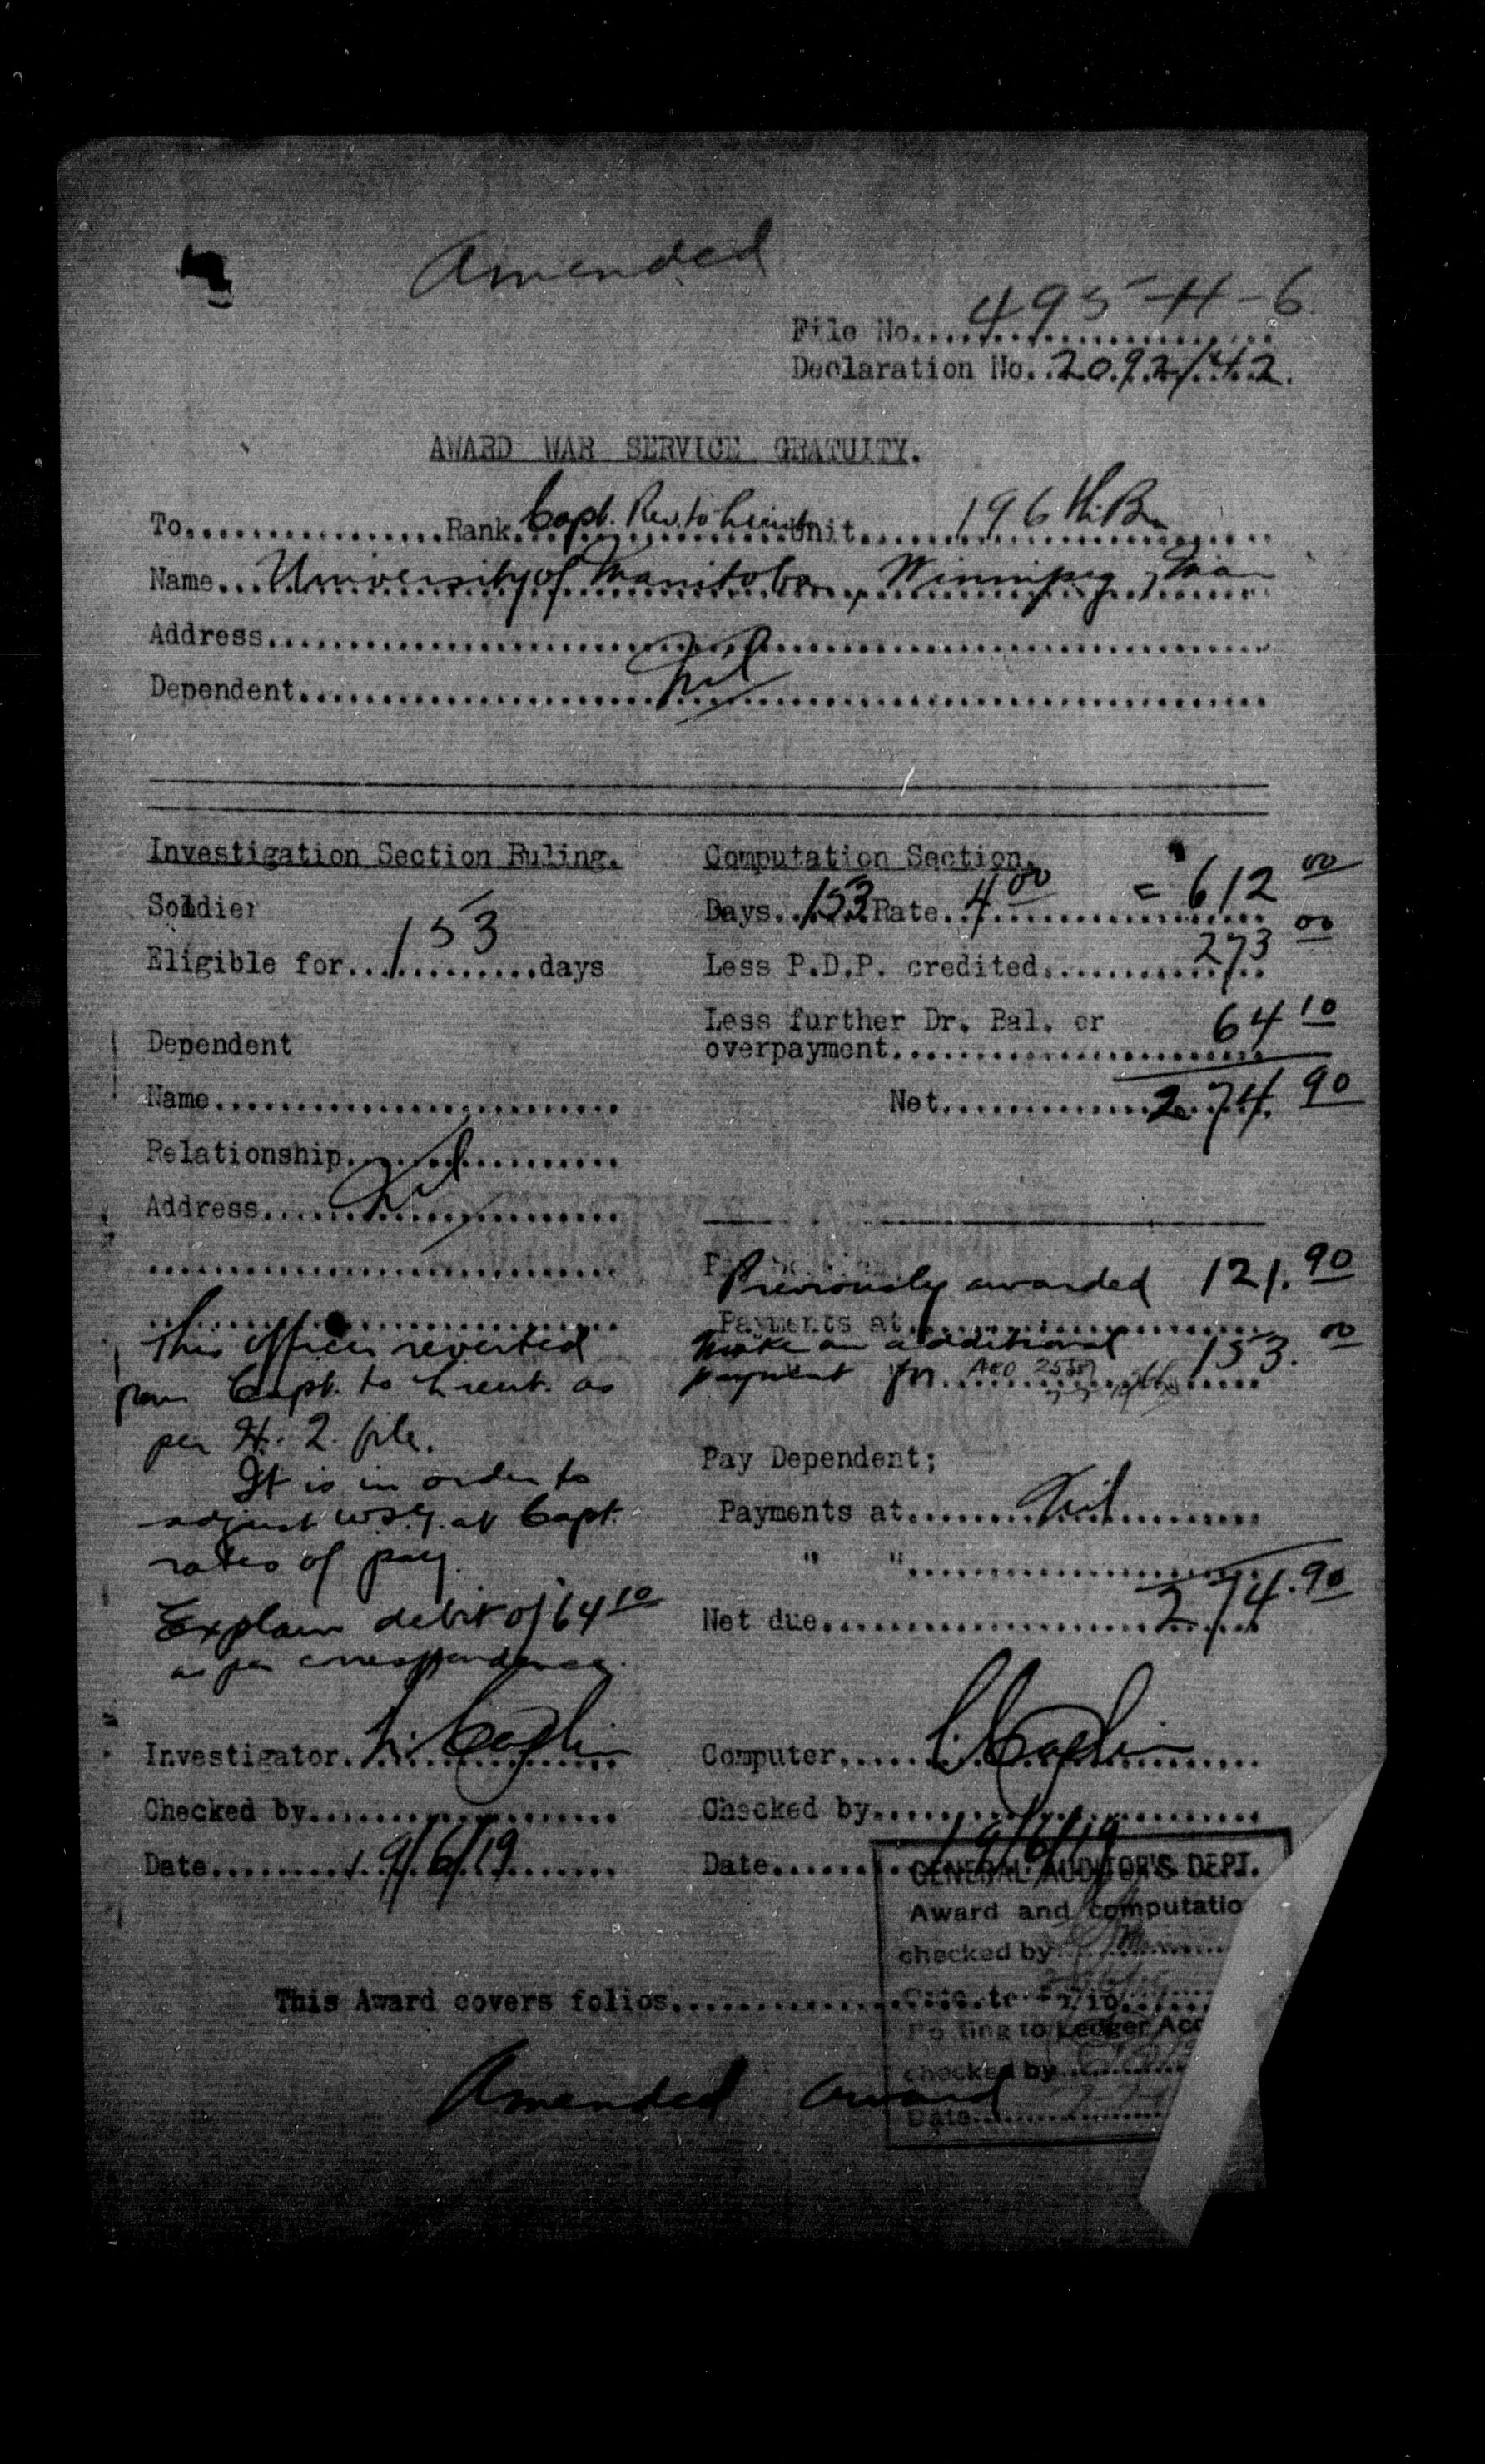 Amended
File No. 495-H-6
Declaration No. 2092/42.
AWARD WAR SERVICE GRATUITY.
To.................Rank. Capt. Rev. to Lieut Unit. 196th Bn
Name... University of Manitoba, Winnipeg, Man
Address..........
Dependent.......... Nil
Investigation Section Ruling.
Soldier
Eligible for....153....days
Dependent
Name..........
Relationship..........
Address.......... Nil
This officer reverted
from Capt. to Lieut. as
per H. 2. file.
It is in order to
adjust W.S.G. at Capt.
rates of pay.
Explain debit of 64 10
as per correspondence.
Investigator..........
Checked by..........
Date.......... 19/6/19
Computation Section.
Days. 153 Rate. 4 00 = 612 00
Less P.D.P. credited. 273 00
Less further Dr. Bal. or
overpayment. 64 10
Net. 274. 90
Previously awarded 121. 90
Payments at..........
Make an additional
payment 153. 00
Pay Dependent;
Payments at.......... Nil
" "..........
274. 90
Net due..........
Computer..........
Checked by..........
Date.......... 19/6/19
GENERAL AUDITOR'S DEPT.
Award and computatio
checked by
This Award covers folios..........
Posting to Ledger Acc
checked by
Date..........
Amended award